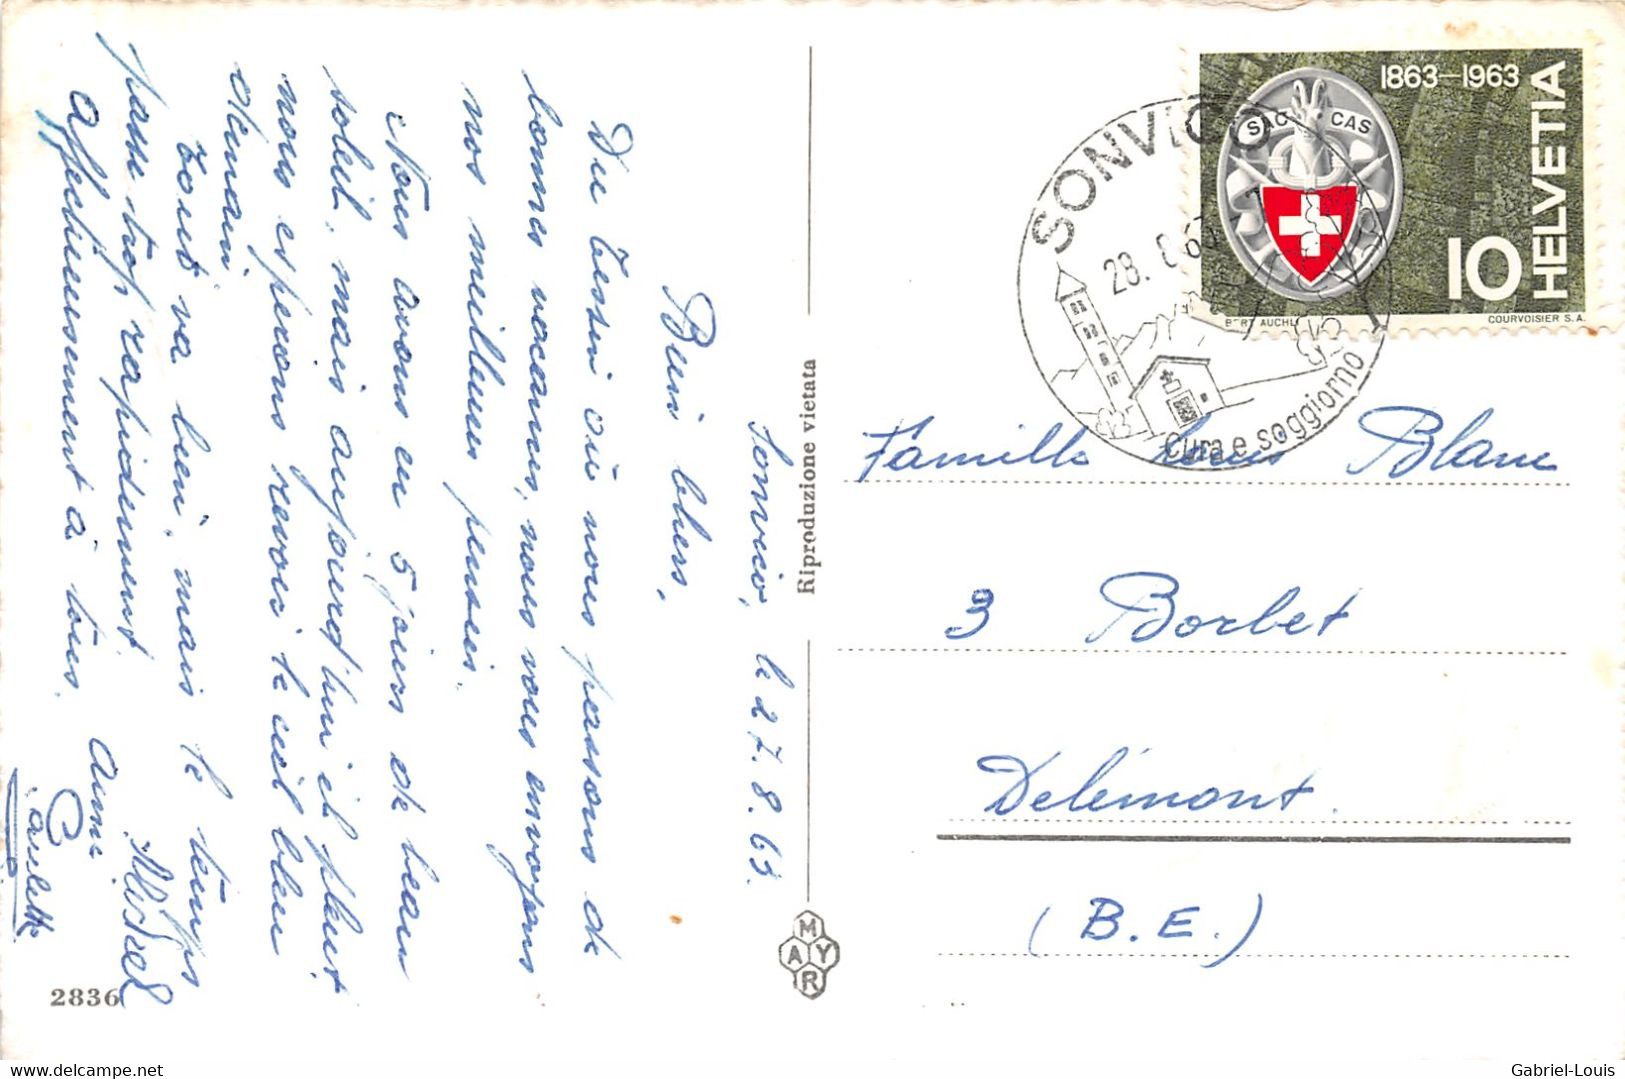 Sonvico, le 27.8.63.
Bien chers,
Du Tessin où nous passons de
bonnes vacances, nous vous envoyons
nos meilleures pensées.
Nous avons eu 5 jours de beau
soleil, mais aujourd'hui il pleut
nous espérons revoir le ciel bleu
demain.
Tout va bien, mais le temps
passe trop rapidement.
Affectueusement à tous.
Michel
Paulette
2836
Riproduzione vietata
MAYR
SONVICO
28. 8. 63
Cura e soggiorno
1863–1963
SAC CAS
HELVETIA
10
BERT AUCHLI
COURVOISIER S.A.
Famille Louis Blanc
3 Borbet
Delémont.
(B.E.)
delcampe.net
Gabriel-Louis